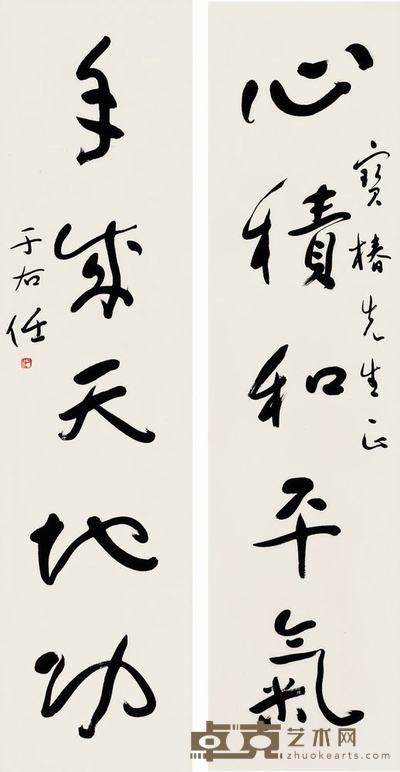 心積和平氣
寶椿先生正
手成天地功
于右任
卓克艺术网
zhuokearts.com